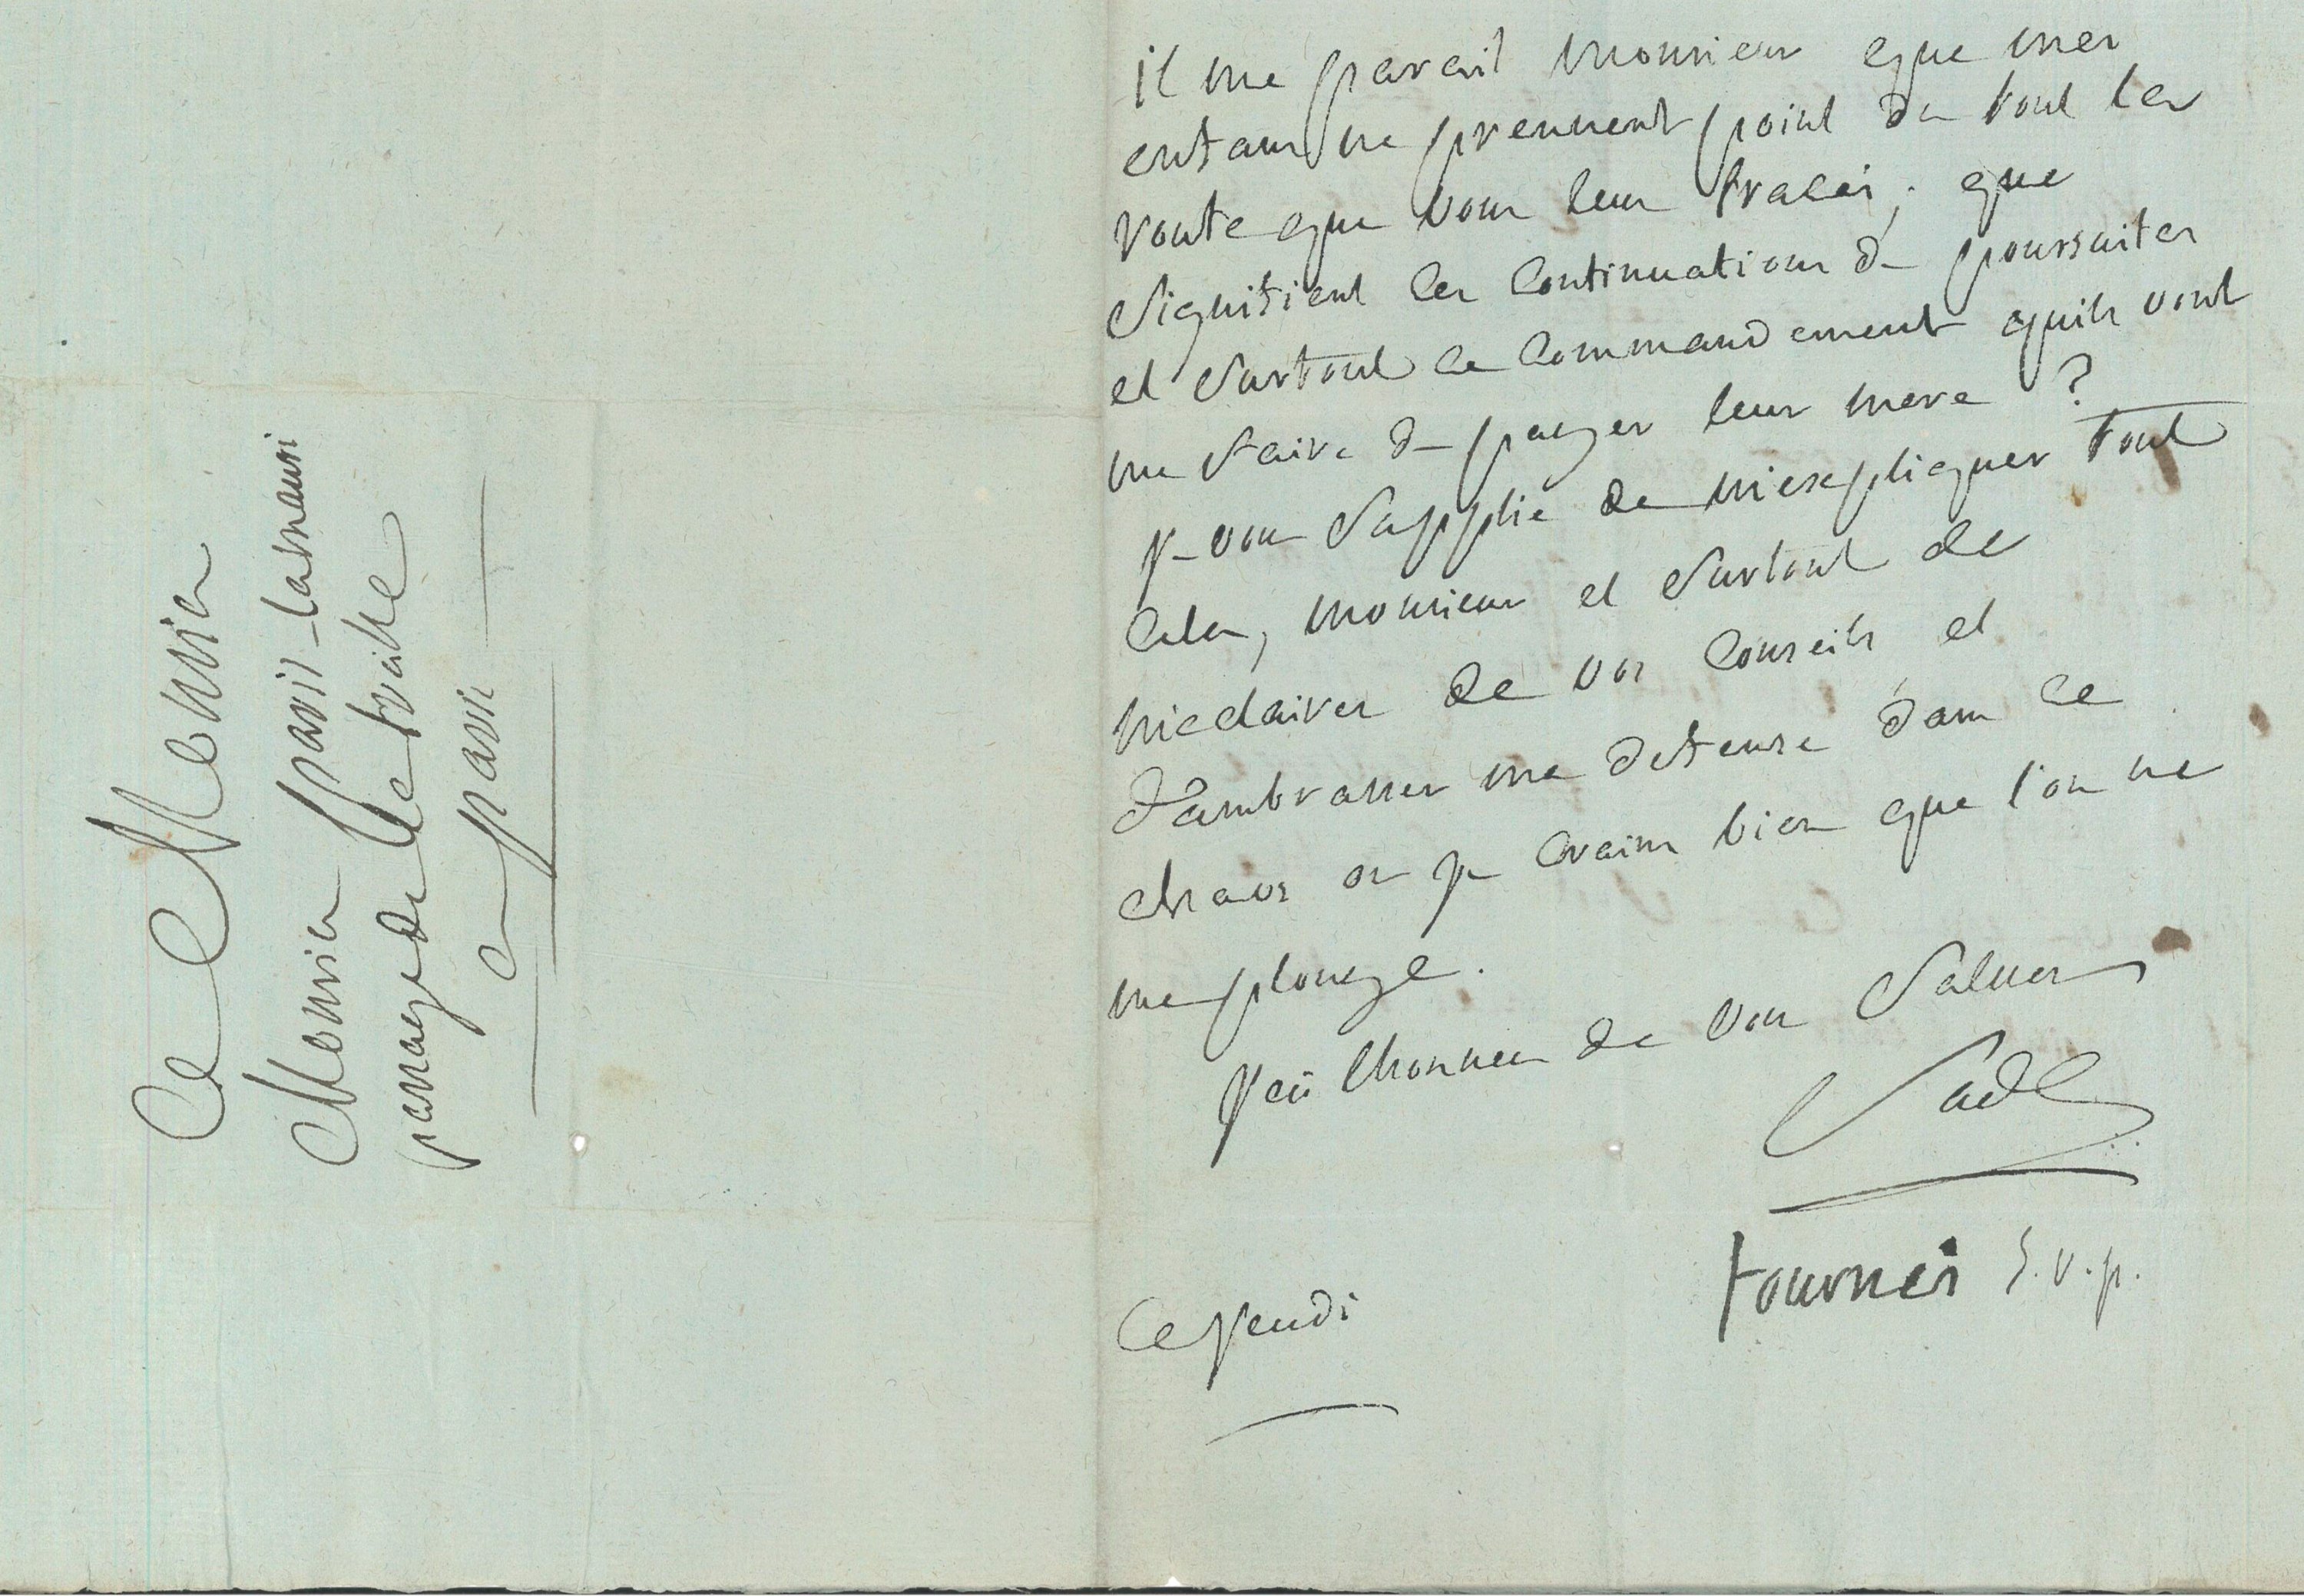 a Monsieur
Monsieur paris
passage de la treille
a paris
il me parait monsieur que mes
enfans ne prennent point du tout la
route que vous leur tracés; que
signifient les continuations de poursuites
et surtout ce commandement quils vont
me faire de payer leur mere ?
je vous supplie de m'expliquer tout
cela, monsieur et surtout de
m'eclairer de vos conseils et
d'ambrasser ma defense dans ce
chaos ou je crains bien que l'on ne
me plonge.
j'ai lhonneur de vous saluer
Sade
tournés s.v.p.
Ce jeudi